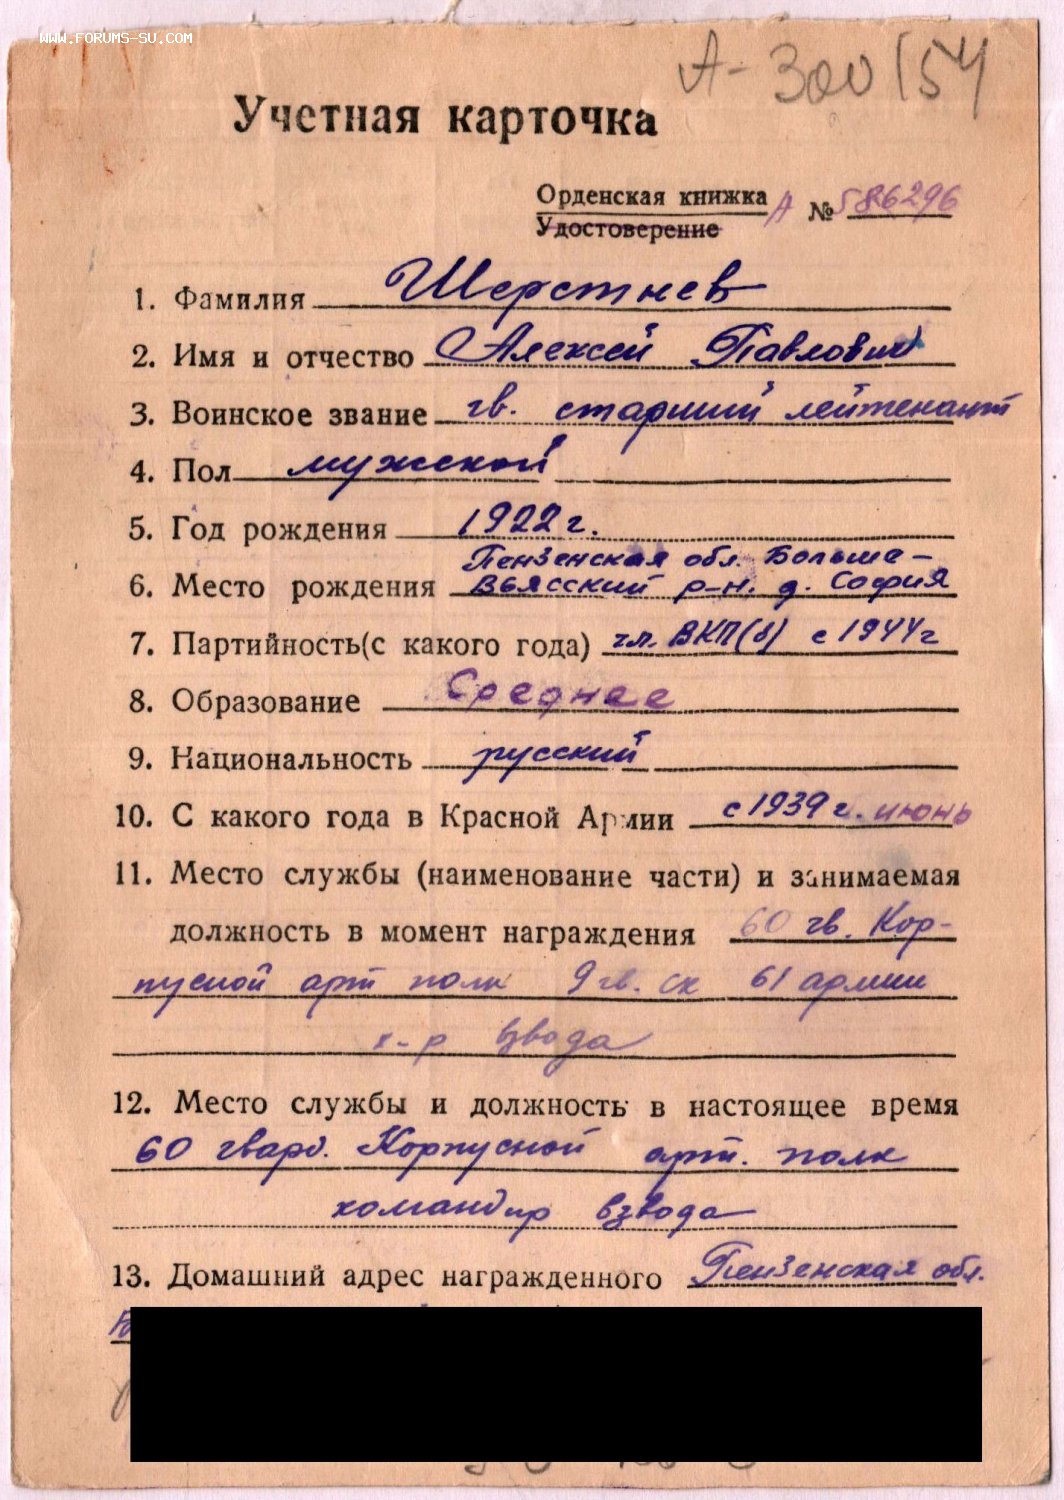 WWW.FORUMS-SU.COM
А-300154
Учетная карточка
Орденская книжка А № 586296
Удостоверение
1. Фамилия Шерстнев
2. Имя и отчество Алексей Павлович
3. Воинское звание гв. старший лейтенант
4. Пол мужской
5. Год рождения 1922 г.
Пензенская обл. Больше-
6. Место рождения Вьясский р-н. д. София
7. Партийность(с какого года) чл. ВКП(б) с 1944 г
8. Образование Среднее
9. Национальность русский
10. С какого года в Красной Армии с 1939 г. июнь
11. Место службы (наименование части) и занимаемая
должность в момент награждения 60 гв. Кор-
пусной арт полк 9 гв. ск 61 армии
к-р взвода
12. Место службы и должность в настоящее время
60 гвард. Корпусной арт. полк
командир взвода
13. Домашний адрес награжденного Пензенская обл.